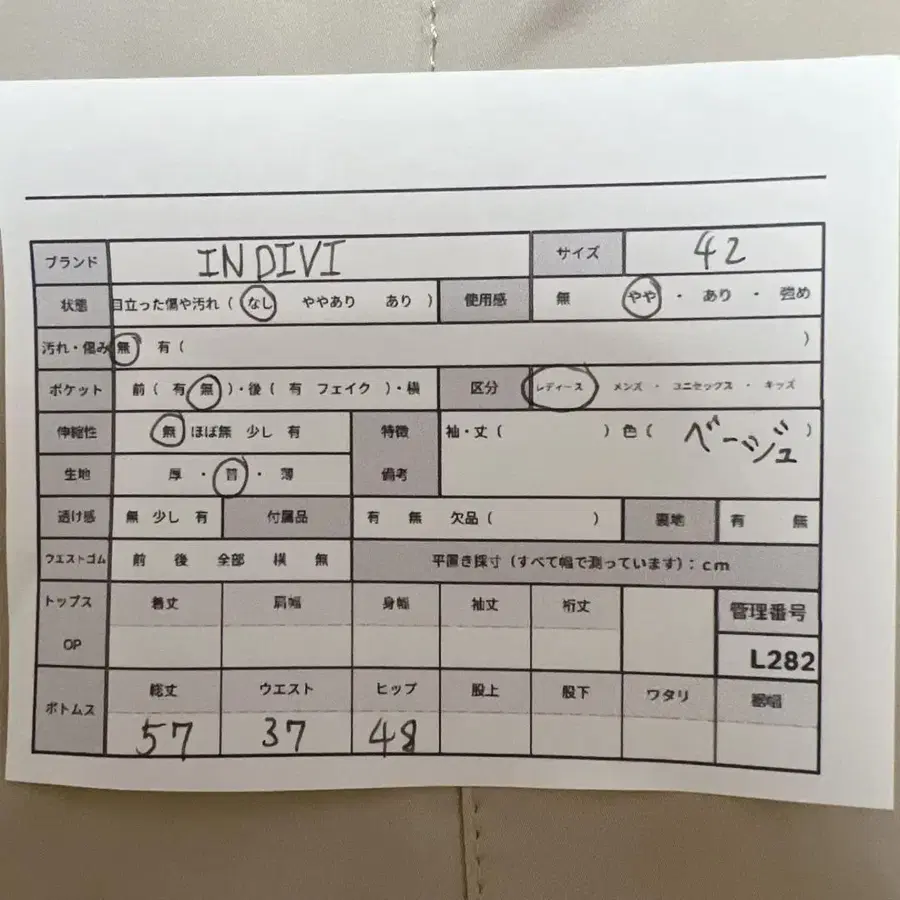 ブランド INDIVI サイズ 42
状態 目立った傷や汚れ ( なし ややあり あり ) 使用感 無 やや ・ あり ・ 強め
汚れ・傷み 無 有 ( )
ポケット 前 ( 有 無 )・後 ( 有 フェイク )・横 区分 レディース メンズ ・ ユニセックス ・ キッズ
伸縮性 無 ほぼ無 少し 有 特徴 袖・丈 ( ) 色 ( ベージュ )
生地 厚 ・ 普 ・ 薄 備考
透け感 無 少し 有 付属品 有 無 欠品 ( ) 裏地 有 無
ウエストゴム 前 後 全部 横 無 平置き採寸 (すべて幅で測っています) : cm
トップス 着丈 肩幅 身幅 袖丈 裄丈 管理番号
OP L282
ボトムス 総丈 ウエスト ヒップ 股上 股下 ワタリ 裾幅
57 37 48